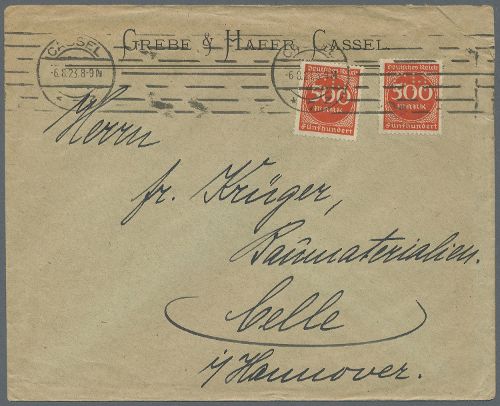 GREBE & HAFER, CASSEL.
CASSEL
-6.8.23.8-9N
Deutsches Reich
500
MARK
Fünfhundert
Deutsches Reich
500
MARK
Fünfhundert
Herrn
fr. Krüger,
Baumaterialien.
Celle
i/Hannover.